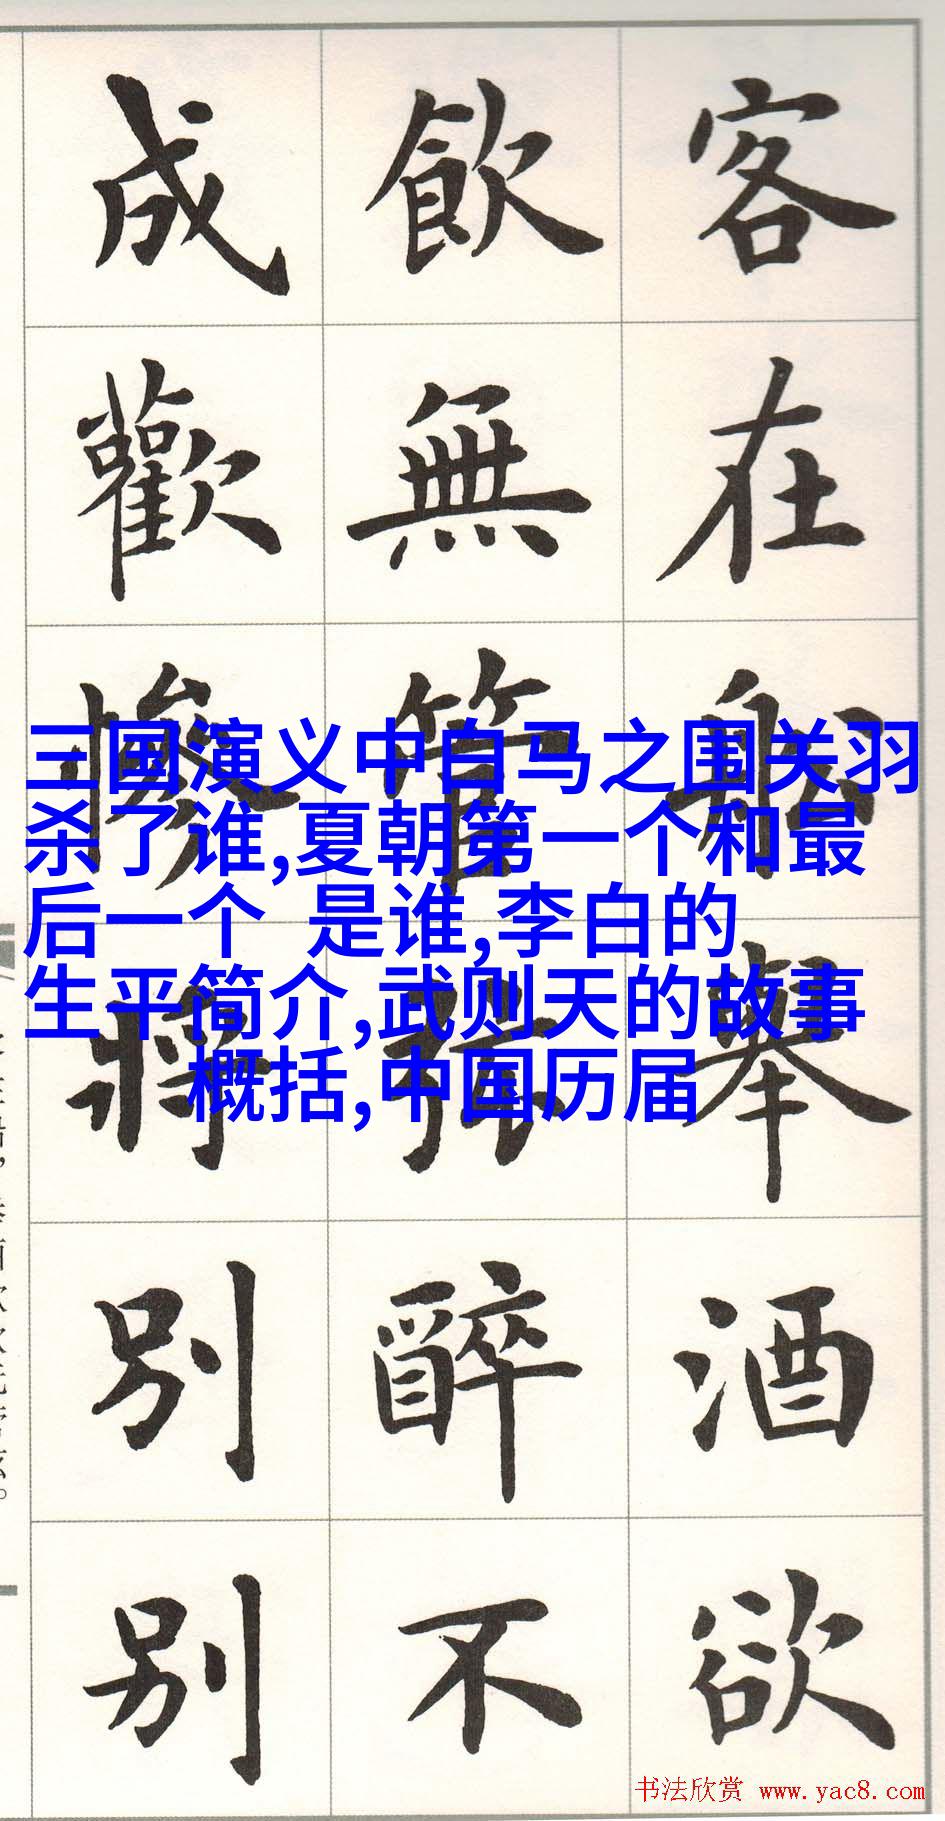 客在船舉酒欲
飲無管弦醉不
成歡慘將別別
三国演义中白马之围关羽
杀了谁,夏朝第一个和最
后一个 是谁,李白的
生平简介,武则天的故事
概括,中国历届
书法欣赏 www.yac8.com